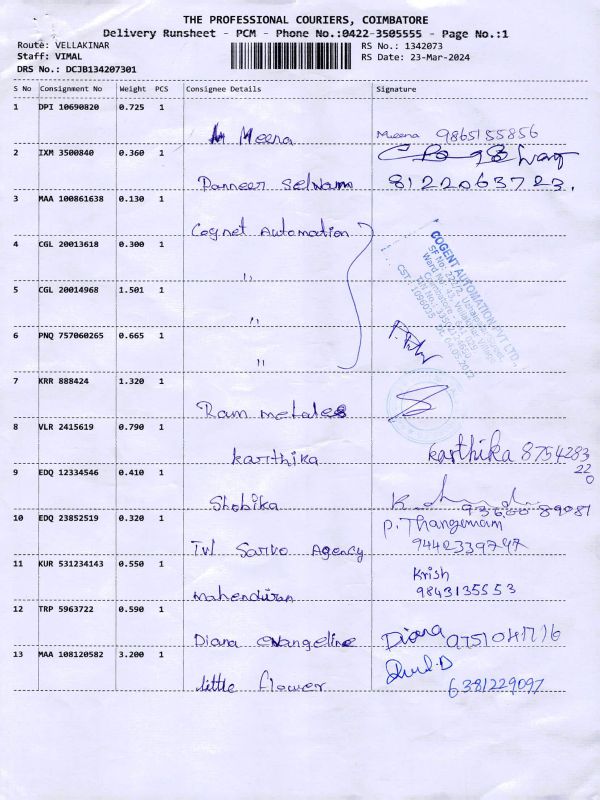 THE PROFESSIONAL COURIERS, COIMBATORE
Delivery Runsheet - PCM - Phone No.:0422-3505555 - Page No.:1
Route: VELLAKINAR RS No.: 1342073
Staff: VIMAL RS Date: 23-Mar-2024
DRS No.: DCJB134207301
S No Consignment No Weight PCS Consignee Details Signature
1 DPI 10690820 0.725 1
Meena Meena 9865155856
2 IXM 3500840 0.360 1
Panneer Selvam 8122063723.
3 MAA 100861638 0.130 1
Cognet Automation
4 CGL 20013618 0.300 1
"
5 CGL 20014968 1.501 1
"
6 PNQ 757060265 0.665 1
"
COGENT AUTOMATION PVT LTD
7 KRR 888424 1.320 1
Ram metales
8 VLR 2415619 0.790 1
karthika karthika 8754283
220
9 EDQ 12334546 0.410 1
Shobika
10 EDQ 23852519 0.320 1
P. Thangamani
Tvl Sarvo Agency
11 KUR 531234143 0.550 1
Krish
Mahendiran 9843135553
12 TRP 5963722 0.590 1
Diana evangeline Diana
13 MAA 108120582 3.200 1
little flower 6381229097